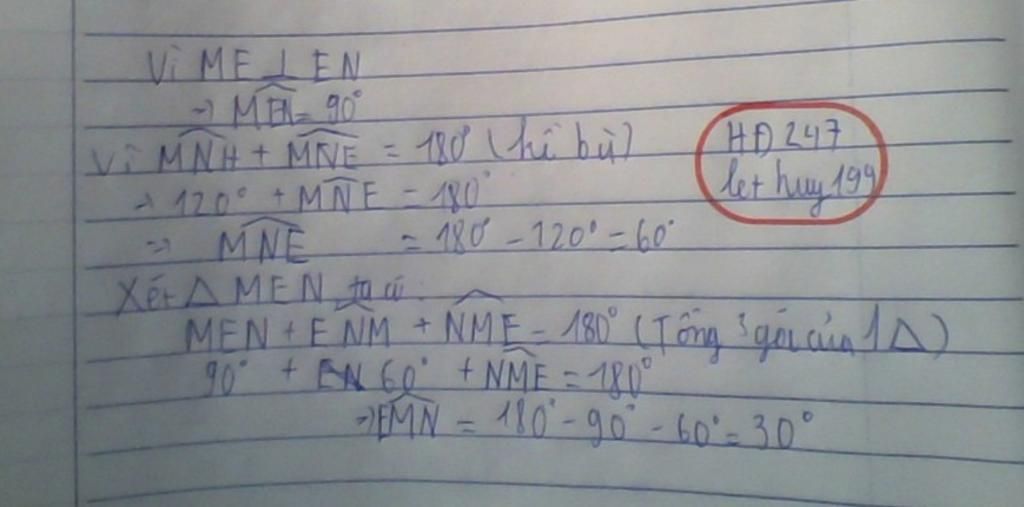 Vì ME ⊥ EN
→ MEN = 90°
Vì MNH + MNE = 180° (kề bù)
→ 120° + MNE = 180°
→ MNE = 180° - 120° = 60°
Xét △ MEN ta có:
MEN + ENM + NME = 180° (Tổng 3 góc của 1 △)
90° + 60° + NME = 180°
→ EMN = 180° - 90° - 60° = 30°
HĐ 247
let huy 199